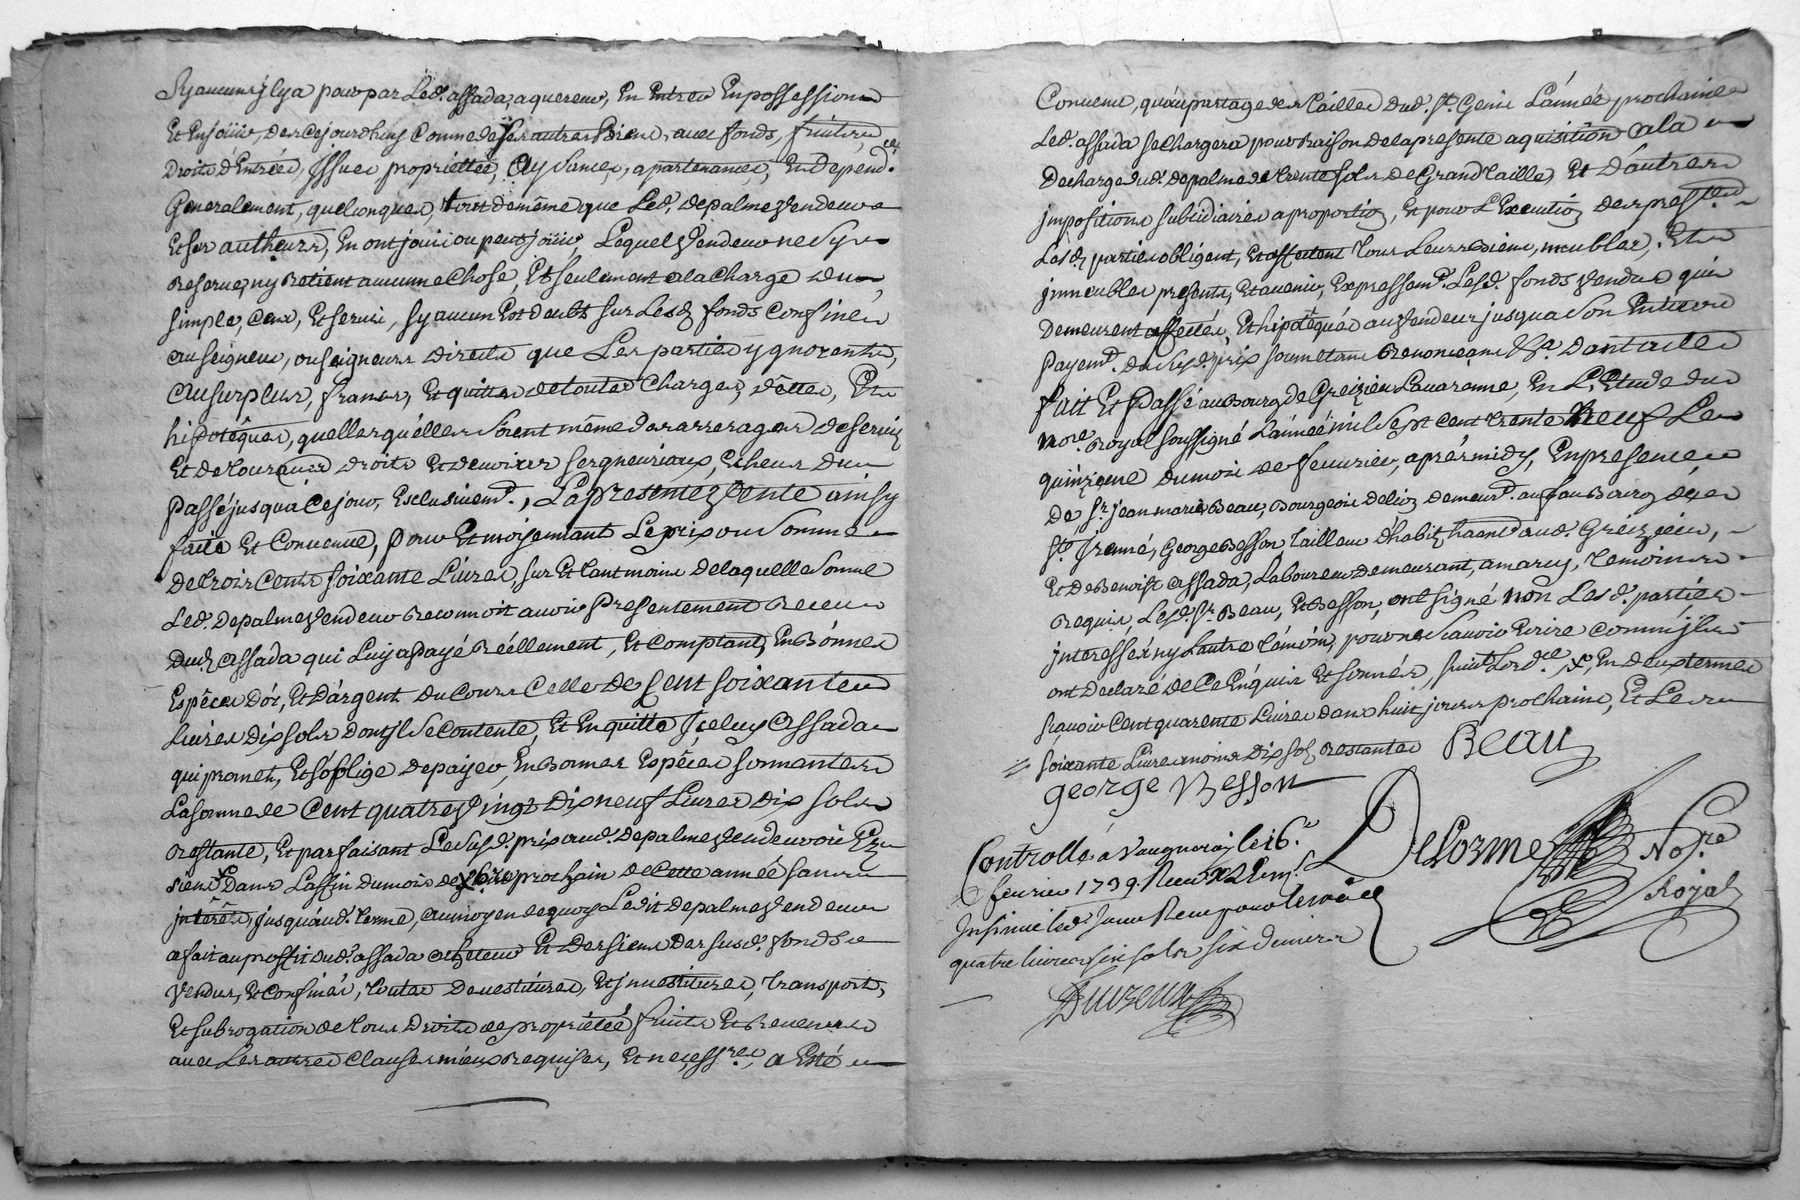 Sy aucuns jl y a pour par Led. assada, aquereur, En Entrer En possession
Et En joüir, des cejourdhuy Comme de ses autres Biens, aux fonds, fruits,
Droits d'Entrées, Issues proprietés, Aysances, apartenances, En Depend.ces
Generalement, quelconques, tout de même que Led. depalme vendeur
Et ses autheurs, En ont joüi ou peut joüir, Lequel vendeur ne S'y
Reserve, ny Retient aucune Chose, Et seulement a la Charge du
simple, Cens, Et servis, sy aucun Est deubt sur Lesd fonds Confinés
au seigneur, ou seigneurs directs que Les parties ygnorent,
Au surplus, francs, Et quittes de toutes Charges, dettes, Et
hipotêques, quelles qu'elles soient même des arrerages de servis
Et de tous autres droits Et devoirs seigneuriaux, Echeus du
Passé jusqua Ce jour, Exclusivem.t, La presente vente ainsy
faite Et Convenue, pour Et moÿennant Le prix ou Somme
De trois Cents soixante Livres, sur Et tant moins de laquelle Somme
Led. depalme vendeur Reconnoit avoir Presentement Receu
Dud. Assada qui Luy a payé Réellement, Et Comptant, En Bonnes
Espêces d'or, Et D'argent du Cours Celle de Cent soixante
Livres Dix sols dont jl Se Contente, Et En quitte Jceluy Assada
qui promet, Et s'oblige de païer, En Bonnes Espêces sonnantes
La somme de Cent quatre vingt Dix neuf Livres Dix sols
Restante, Et parfaisant Le Susd. prix aud. Depalme vendeur ou Es
siens Dans La fin du mois de xbre prochain de Cette année sans
jnterêts, jusqu'aud. terme, au moyen de quoy Ledit Depalme vendeur
a fait au proffit dud. assada acheteur Et Des siens Des susd. fonds
Vendus, Et Confinés, toutes Devestitures, Et jnvestitures, transport,
Et subrogation de tous Droits de proprieté fruits Et Revenus
avec Les autres Clauses mieux Requises, Et necess.res, a Esté
Convenu, qu'au partage des tailles dud. St. Genis L'année prochaine
Led. assada se Chargera pour Raison de la presente aquisition a la
Decharge dud. Depalme de trente sols de Grand taille, Et D'autres
jmpositions subsidiaires a proportion, Et pour L'Execution des presentes
Lesd. parties obligent, Et affectent tous Leurs Biens, meubles, Et
jmmeubles presents, Et avenir, Expressem.t Lesd. fonds vendus qui
Demeurent affectés, Et hipotêqués au vendeur jusqua Son Entier
Payem.t du Susd. prix soumetans Renonceans &a. Dont acte
fait Et Passé au Bourg de Greizieu Lavarenne, En L'Etude du
no.re Royal soussigné L'année mil Sept Cent trente Neuf Le
quinzieme du mois de fevrier, aprés midy, En presence
De Sr. jean marie Beau, Bourgeois de Lion demeur.t au fauBourg de
St. jrené, George Besson tailleur d'habit aud. Greizieu,
Et De Benoist assada, Laboureur demeurant, a marcy, temoins
Requis, Lesd. Sr. Beau, Et Besson, ont signé non Lesd. parties
jnteressés ny L'autre témoin, pour ne Scavoir Ecrire Comme jls
ont declaré de Ce Enquis Et sommés, suiv.t L'ord.ce x, En deux termes
scavoir Cent quarente Livres dans huit jours prochains, Et Les
soixante Livres moins dix sols restantes Beau
george Besson
DeLorme No.re Royal
Controllé a Vaugneray le 16.
fevrier 1739.
quatre livres six sols six deniers